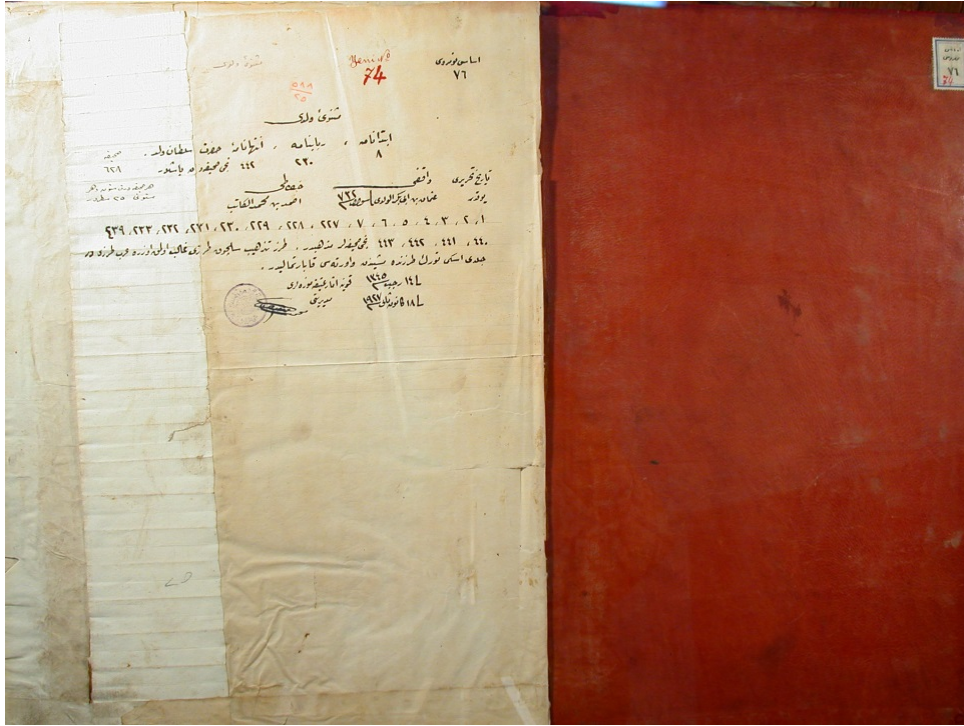 اساس نوروسی
٧٦
Yeni No
74
مثنوئ ولدی
٥٩٩
٢٥
مثنوئ ولدی
ابتدانامه ، ربابنامه ، انتهانامۀ حضرت سلطان ولد .
٨ ٢٣٠ ٤٤٢ نجی صحیفه‌ده باشلار
صحیفه
٦٢٨
تاریخ تحریری واقفی خطاطی
یوقدر عثمان بن ابی بکر الولدی ٧٣٢ احمد بن محمد الکاتب
هر صحیفه
ستونی ٣٥ سطردر
١، ٢، ٣، ٤، ٥، ٦، ٧، ٢٢٧، ٢٢٨، ٢٢٩، ٢٣٠، ٢٣١، ٢٣٢، ٢٣٣، ٤٣٩
٤٤٠، ٤٤١، ٤٤٢، ٤٤٣ نجی صحیفه‌لر مذهبدر . طرز تذهیب سلجوق طرزی غالب اولمق اوزره عرب طرزنده در
جلدی اسکی تورك طرزنده مشیندن واورته‌سی قابارتمالیدر .
١٤ رجب ١٣٤٥ قونیه آثار عتیقه موزه‌سی
١٨ کانون ثانی ١٩٢٧ مدیری
٧٦
74